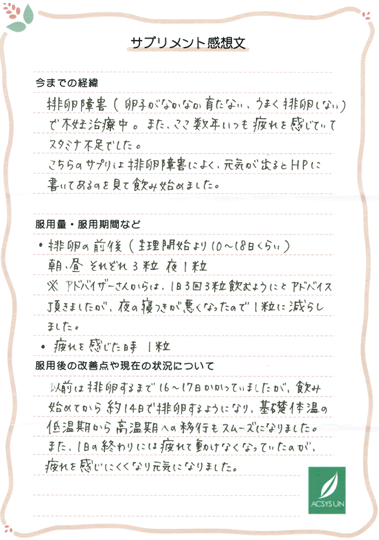 サプリメント感想文
今までの経緯
排卵障害(卵子がなかなか育たない、うまく排卵しない)
で不妊治療中。また、ここ数年いつも疲れを感じていて
スタミナ不足でした。
こちらのサプリは排卵障害によく、元気が出るとHPに
書いてあるのを見て飲み始めました。
服用量・服用期間など
• 排卵の前後(生理開始より10〜18日くらい)
朝、昼 それぞれ3粒 夜1粒
※ アドバイザーさんからは、1日3回3粒飲むようにとアドバイス
頂きましたが、夜の寝つきが悪くなったので1粒に減らし
ました。
• 疲れを感じた時 1粒
服用後の改善点や現在の状況について
以前は排卵するまで16〜17日かかっていましたが、飲み
始めてから約14日で排卵するようになり、基礎体温の
低温期から高温期への移行もスムーズになりました。
また、1日の終わりには疲れて動けなくなっていたのが、
疲れを感じにくくなり元気になりました。
ACSYS UN